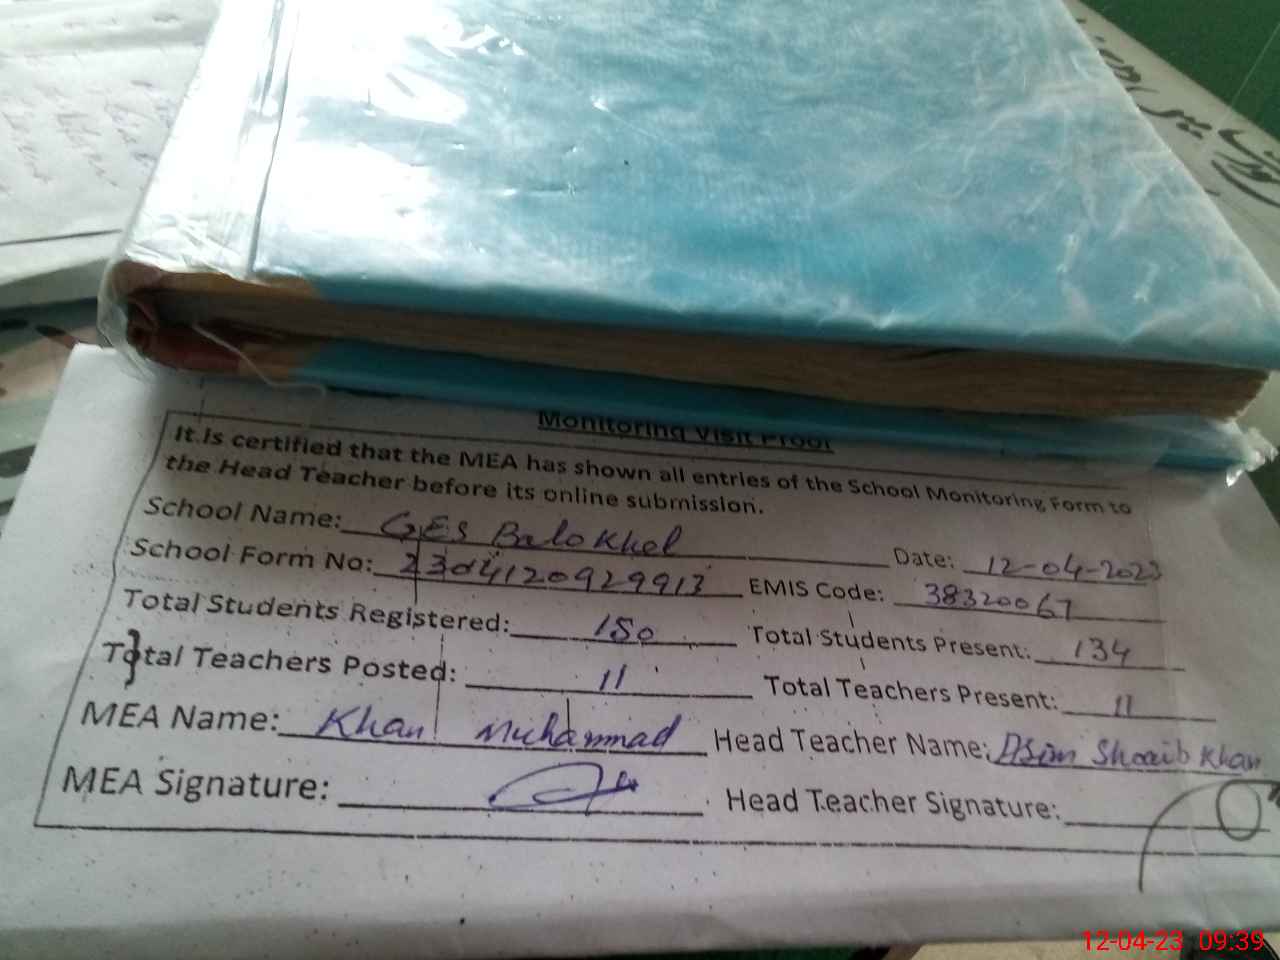 Monitoring Visit Proof
It is certified that the MEA has shown all entries of the School Monitoring Form to
the Head Teacher before its online submission.
School Name: GES Balo Khel Date: 12-04-2023
School Form No: 2304120929913 EMIS Code: 38320067
Total Students Registered: 150 Total Students Present: 134
Total Teachers Posted: 11 Total Teachers Present: 11
MEA Name: Khan Muhammad Head Teacher Name: Asim Shoaib Khan
MEA Signature: Head Teacher Signature:
12-04-23 09:39